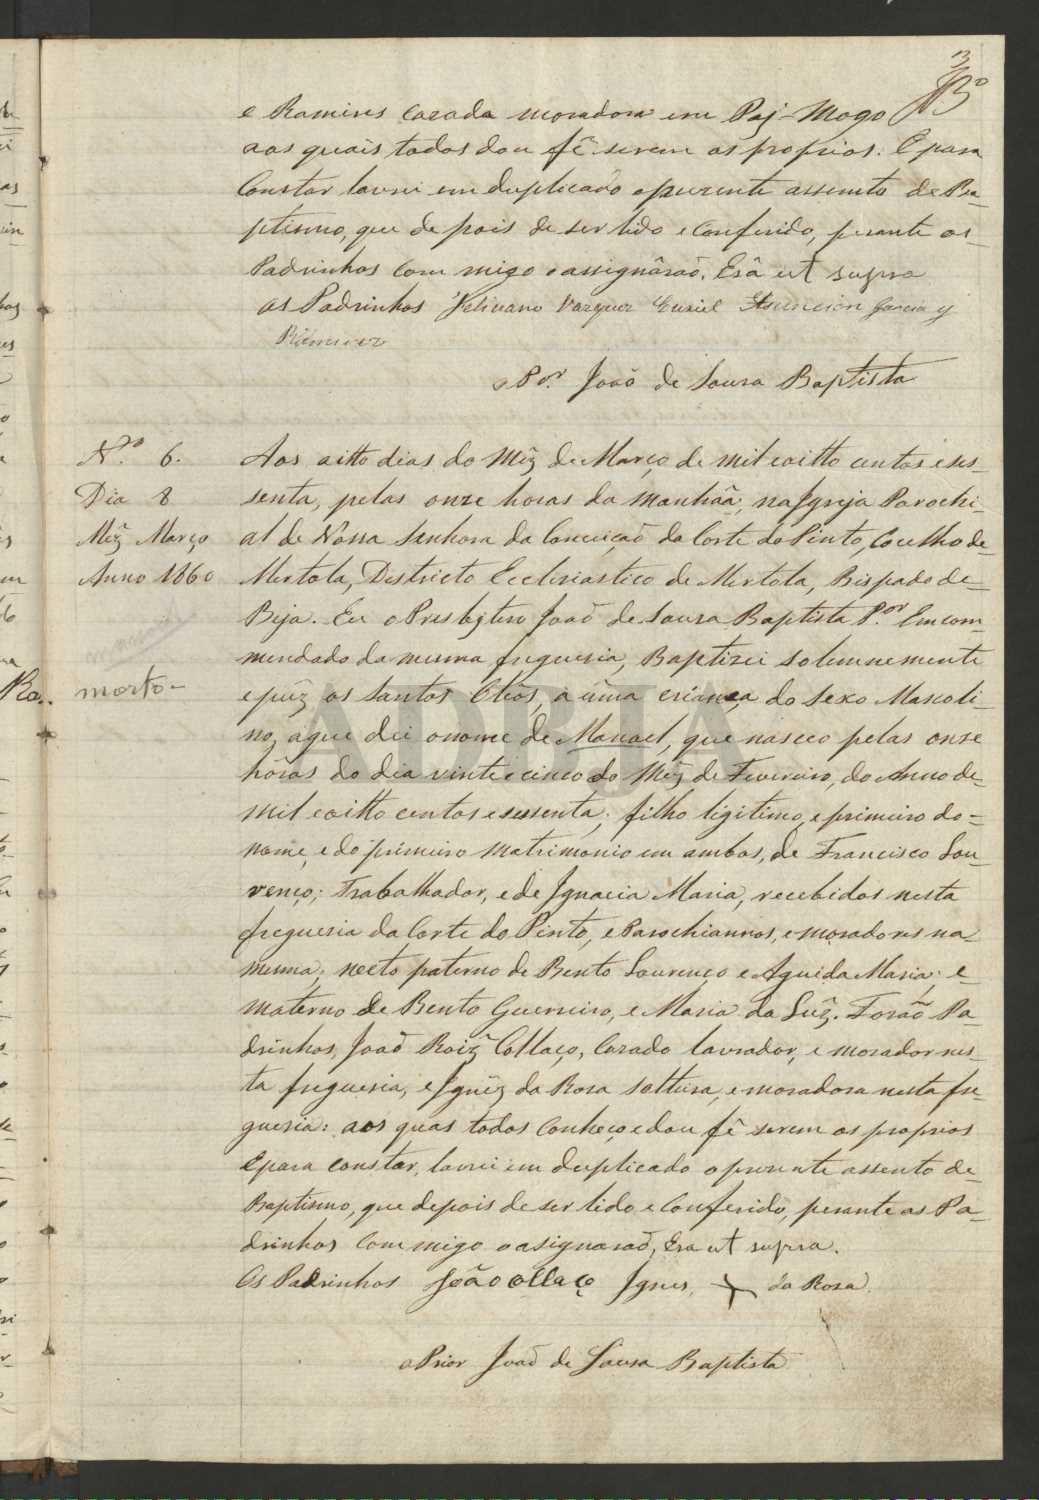 3
B.º
e Ramires Cazada moradora em Paj-Mogo
aos quais todos dou fê serem os proprios. E para
Constar lavrei em duplicado o prezente assento de Ba-
ptismo, que de pois de ser lido e Conferido, perante os
Padrinhos Com migo o assignârão. Erâ ut supra
os Padrinhos Feliciano Vazquez Asuncion Garcia y
Rimirez
o P.or João de Sousa Baptista
N.º 6.
Dia 8
Mêz Março
Anno 1860
morto-
Aos oitto dias do Mêz de Março de mil eoitto centos eses-
senta, pelas onze horas da manhãa, na Igreja Parochi-
al de Nossa Senhora da Conceição da Corte do Pinto, Concelho de
Mertola, Districto Ecclesiastico de Mertola, Bispado de-
Beja. Eu o Presbytero João de Sousa Baptista P.or Emcom-
mendado da mesma freguesia, Baptizei solemnemente
e pûz os Santos Olêos, a ûma criança do Sexo Mascoli-
no, aque dei o nome de Manoel, que nasceo pelas onze
hóras do dia vinte e cinco do Mêz de Fevereiro, do Anno de
mil eoitto centos e sessenta; filho ligitimo, e primeiro do-
nome, e do primeiro Matrimonio em ambos, de Francisco Lou-
renço; Trabalhador, e de Ignacia Maria, recebidos nesta
freguesia da Corte do Pinto, e Parochiannos, e moradores na
mesma; neeto paterno de Bento Lourenço e Aguida Maria; e
materno de Bento Guerreiro, e Maria da Luz. Forão Pa-
drinhos, João Roiz Collaço, Cazado lavrador, e morador nes-
ta freguesia, e Ignêz da Rosa solteira, e moradora nesta fre-
guesia: aos quas todos Conheço e dou fê serem os proprios
E para constar, lavrei em duplicado o prezente assento de
Baptismo, que depois de ser lido e Conferido, perante os Pa-
drinhos Com migo o asignarão, Era ut supra.
Os Padrinhos João ollaço Ignes, da Rosa.
o Prior João de Sousa Baptista
ADBJA
Ra..